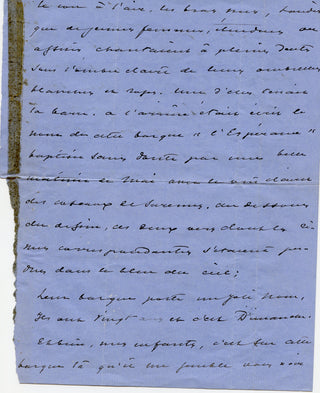 le cou à l'air, les bras nus, tandis
que de jeunes femmes, étendues ou
assises chantaient à pleine voix
sous l'ombre claire de leurs ombrelles
blanches et roses. Une d'elles tenait
la barre. à l'arrière était écrit le
nom de cette barque "l'Espérance"
baptisée sans doute par une belle
matinée de Mai avec le vin clairet
des coteaux de Suresnes. au dessous
du dessin, ces deux vers dont les
correspondantes s'étaient
dans le bleu du ciel;
Leur barque porte un joli nom,
Ils ont vingt ans et c'est Dimanche.
Eh bien, mes enfants, c'est sur cette
barque là qu'il me semble vous voir